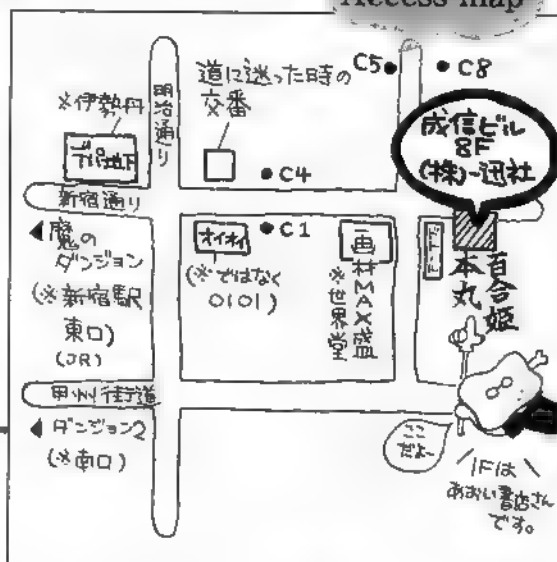 Access map
C5
C8
道に迷った時の
交番
明治通り
※伊勢丹
デパ地下
成信ビル
8F
(株)一迅社
C4
新宿通り
◀魔の
ダンジョン
(※新宿駅
東口)
(JR)
オイオイ
C1
(※ではなく
0101)
画材MAX盛
※世界堂
百合姫
本丸
甲州街道
◀ダンジョン2
(※南口)
ここ
だよ〜
1Fは
あおい書店さん
です。